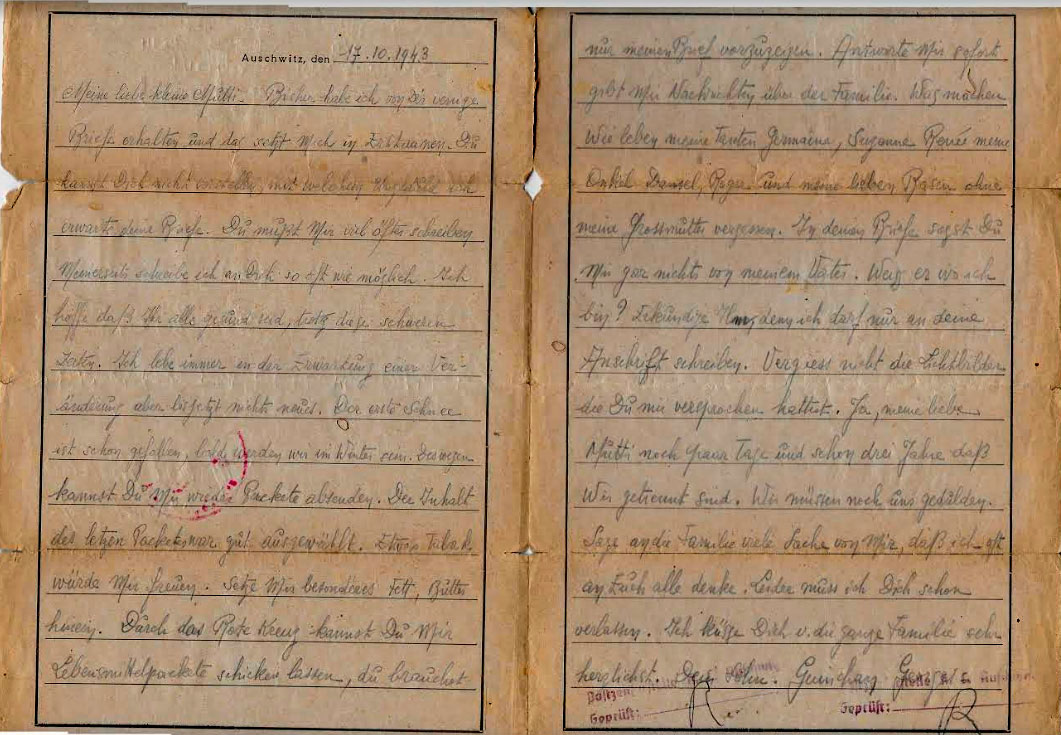 Auschwitz, den 17.10.1943
Meine liebe kleine Mutti. Bisher habe ich von Dir wenige
Briefe erhalten und das setzt mich in Erstaunen. Du
kannst Dich nicht vorstellen, mit welcher Ungeduld ich
erwarte deine Briefe. Du mußt Mir viel öfter schreiben
Meinerseits schreibe ich an Dich so oft wie möglich. Ich
hoffe daß Ihr alle gesund seid, trotz diese schweren
Zeiten. Ich lebe immer in der Erwartung einer Ver-
änderung aber bis jetzt nichts neues. Der erste Schnee
ist schon gefallen, bald werden wir im Winter sein. Deswegen
kannst Du Mir wieder Packete absenden. Der Inhalt
des letzen Packetes war gut ausgewählt. Etwas Tabak
würde Mir freuen. Setze Mir besonderes Fett, Butter
hinein. Durch das Rote Kreuz kannst Du Mir
Lebensmittelpackete schicken lassen, du brauchst
nur meinen Brief vorzuzeigen. Antworte Mir sofort
gibt Mir Nachrichten über der Familie. Was machen
Wie leben meine Tanten Germaine, Suzanne Renée meine
Onkel Roger und meine lieben Basen ohne
meine Grossmutter vergessen. In deinen Briefe sagst Du
Mir gar nichts von meinem Vater. Weiß er wo ich
bin? Erkundige denn ich darf nur an deine
Anschrift schreiben. Vergiess nicht die Lichtbilder
die Du mir versprochen hattest. Ja, meine liebe
Mutti noch paar Tage und schon drei Jahre daß
Wir getrennt sind. Wir müssen noch uns gedulden.
Sage an die Familie viele Sache von Mir, daß ich oft
an Euch alle denke. Leider muss ich Dich schon
verlassen. Ich küsse Dich u. die ganze Familie sehr
herzlichst. Dein Sohn.
Geprüft:
Geprüft: